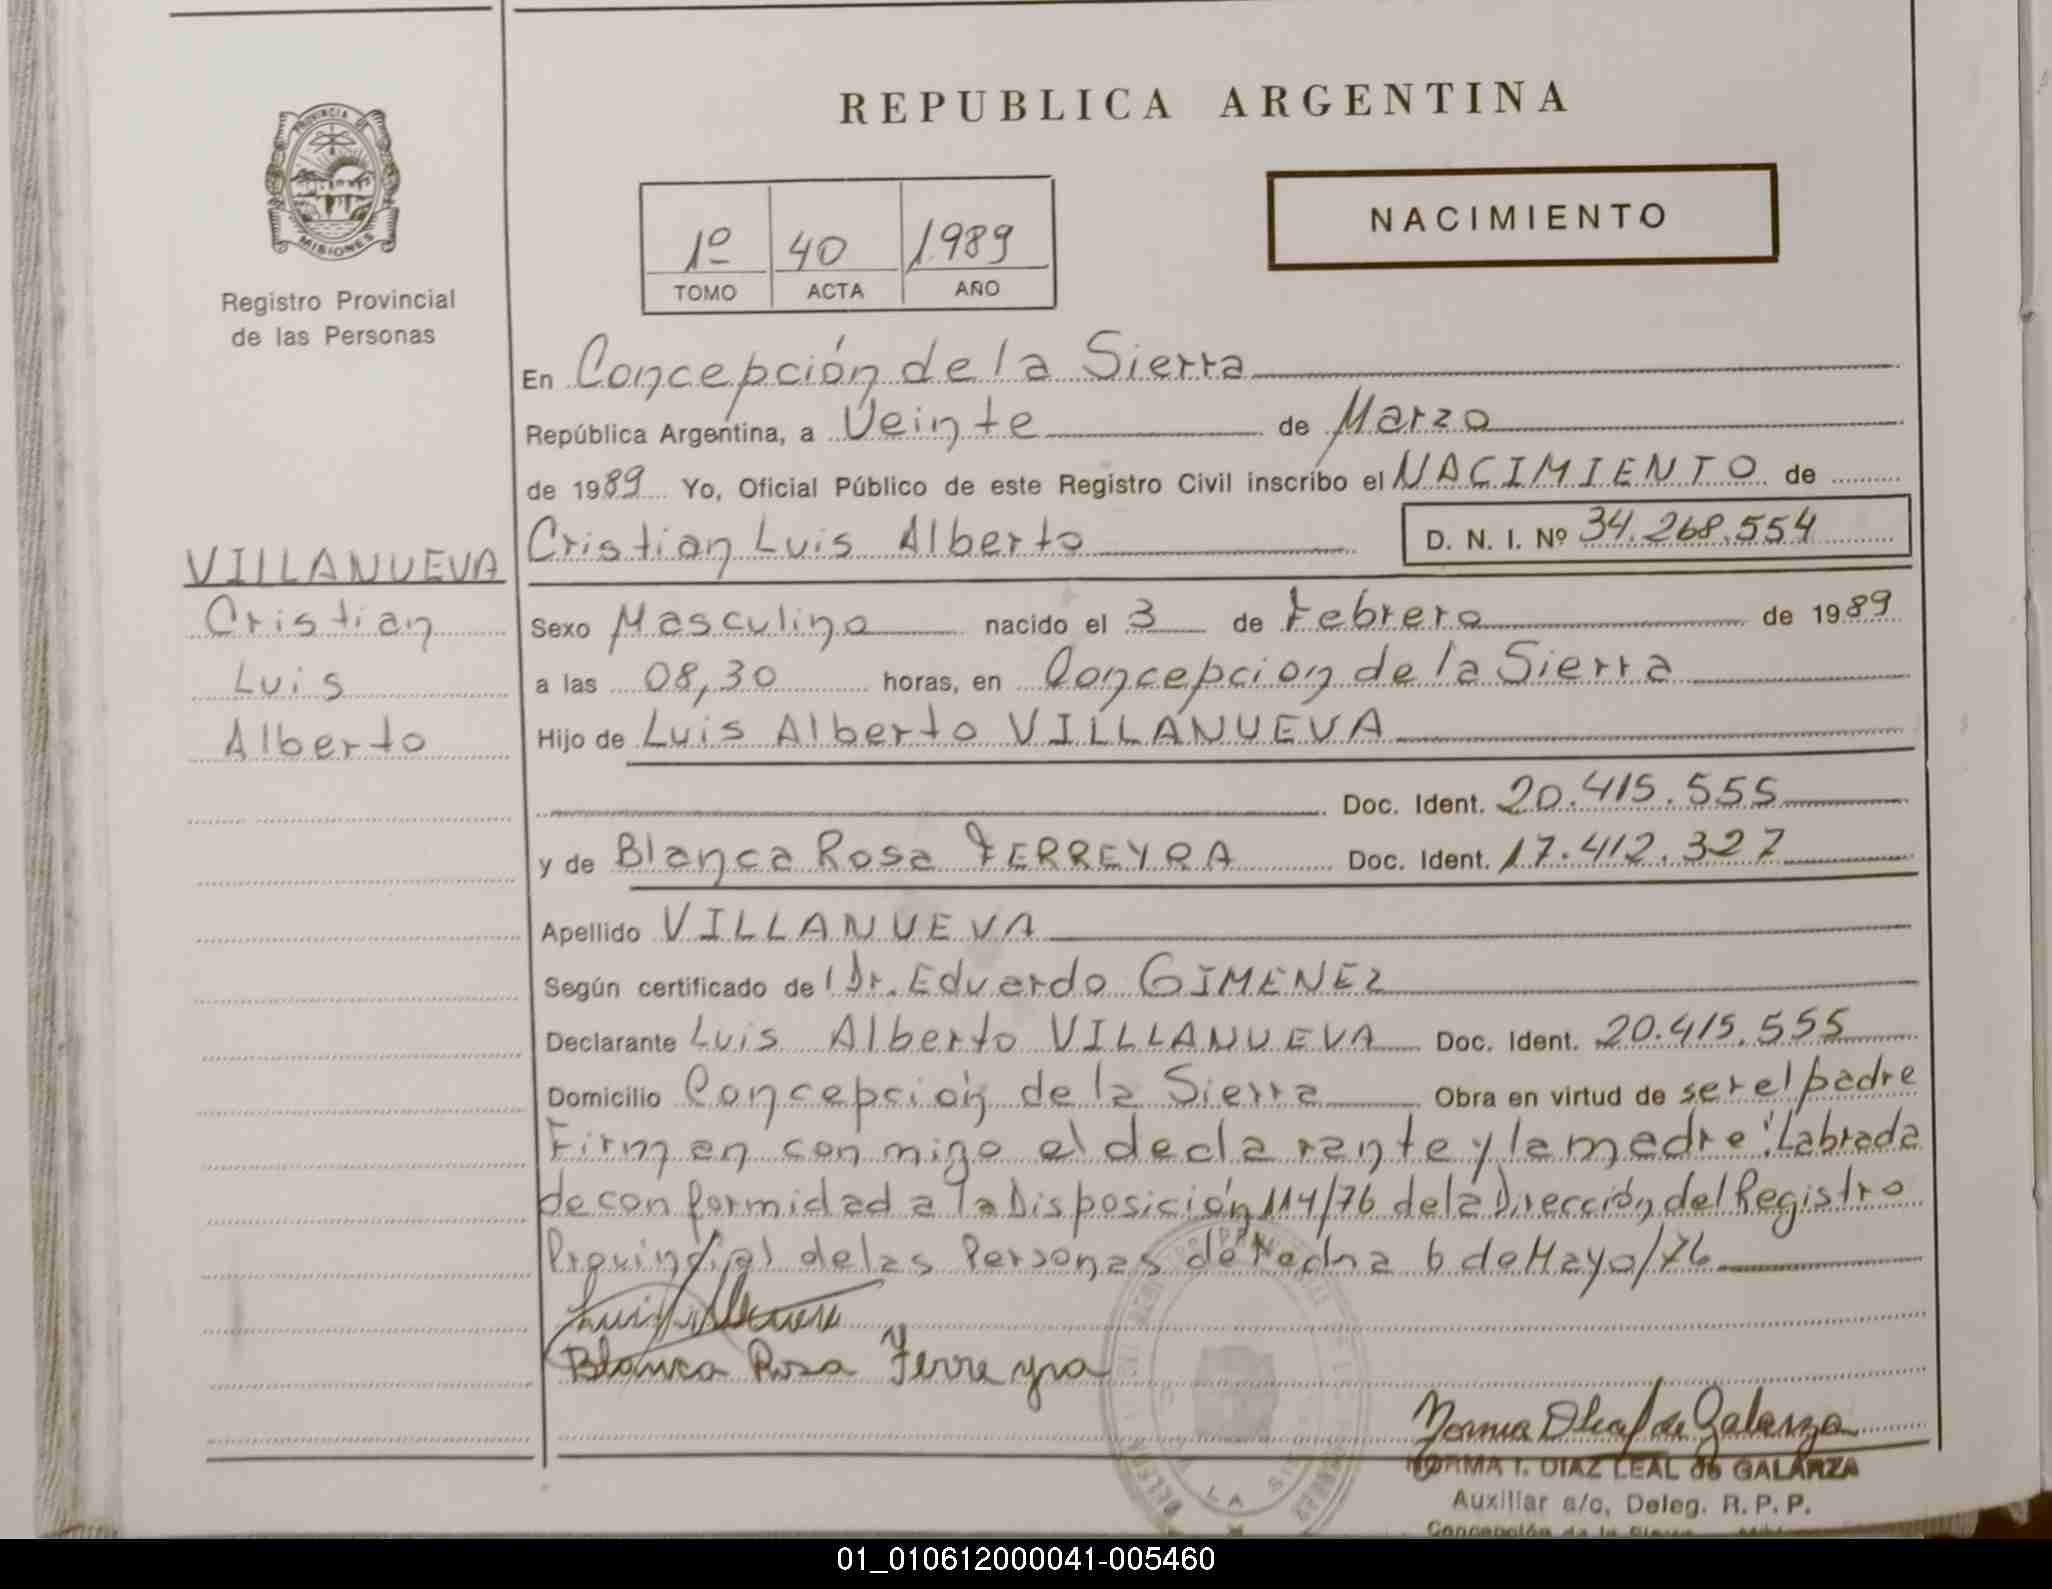 PROVINCIA DE
MISIONES
Registro Provincial
de las Personas
VILLANUEVA
Cristian
Luis
Alberto
REPUBLICA ARGENTINA
1º 40 1989
TOMO ACTA AÑO
NACIMIENTO
En Concepción de la Sierra
República Argentina, a Veinte de Marzo
de 1989 Yo, Oficial Público de este Registro Civil inscribo el NACIMIENTO de
Cristian Luis Alberto D. N. I. Nº 34.268.554
Sexo Masculino nacido el 3 de Febrero de 1989
a las 08,30 horas, en Concepcion de la Sierra
Hijo de Luis Alberto VILLANUEVA
Doc. Ident. 20.415.555
y de Blanca Rosa FERREYRA Doc. Ident. 17.412.327
Apellido VILLANUEVA
Según certificado de Dr. Eduardo GIMENEZ
Declarante Luis Alberto VILLANUEVA Doc. Ident. 20.415.555
Domicilio Concepción de la Sierra Obra en virtud de ser el padre
Firman con migo el declarante y la madre: Labrada
de conformidad a la Disposición 114/76 de la Dirección del Registro
Provincial de las Personas de Fecha 6 de Mayo/76
Blanca Rosa Ferreyra
Norma D Leal de Galarza
NORMA I. DIAZ LEAL de GALARZA
Auxiliar a/c. Deleg. R. P. P.
Concepción de la Sierra
01_010612000041-005460